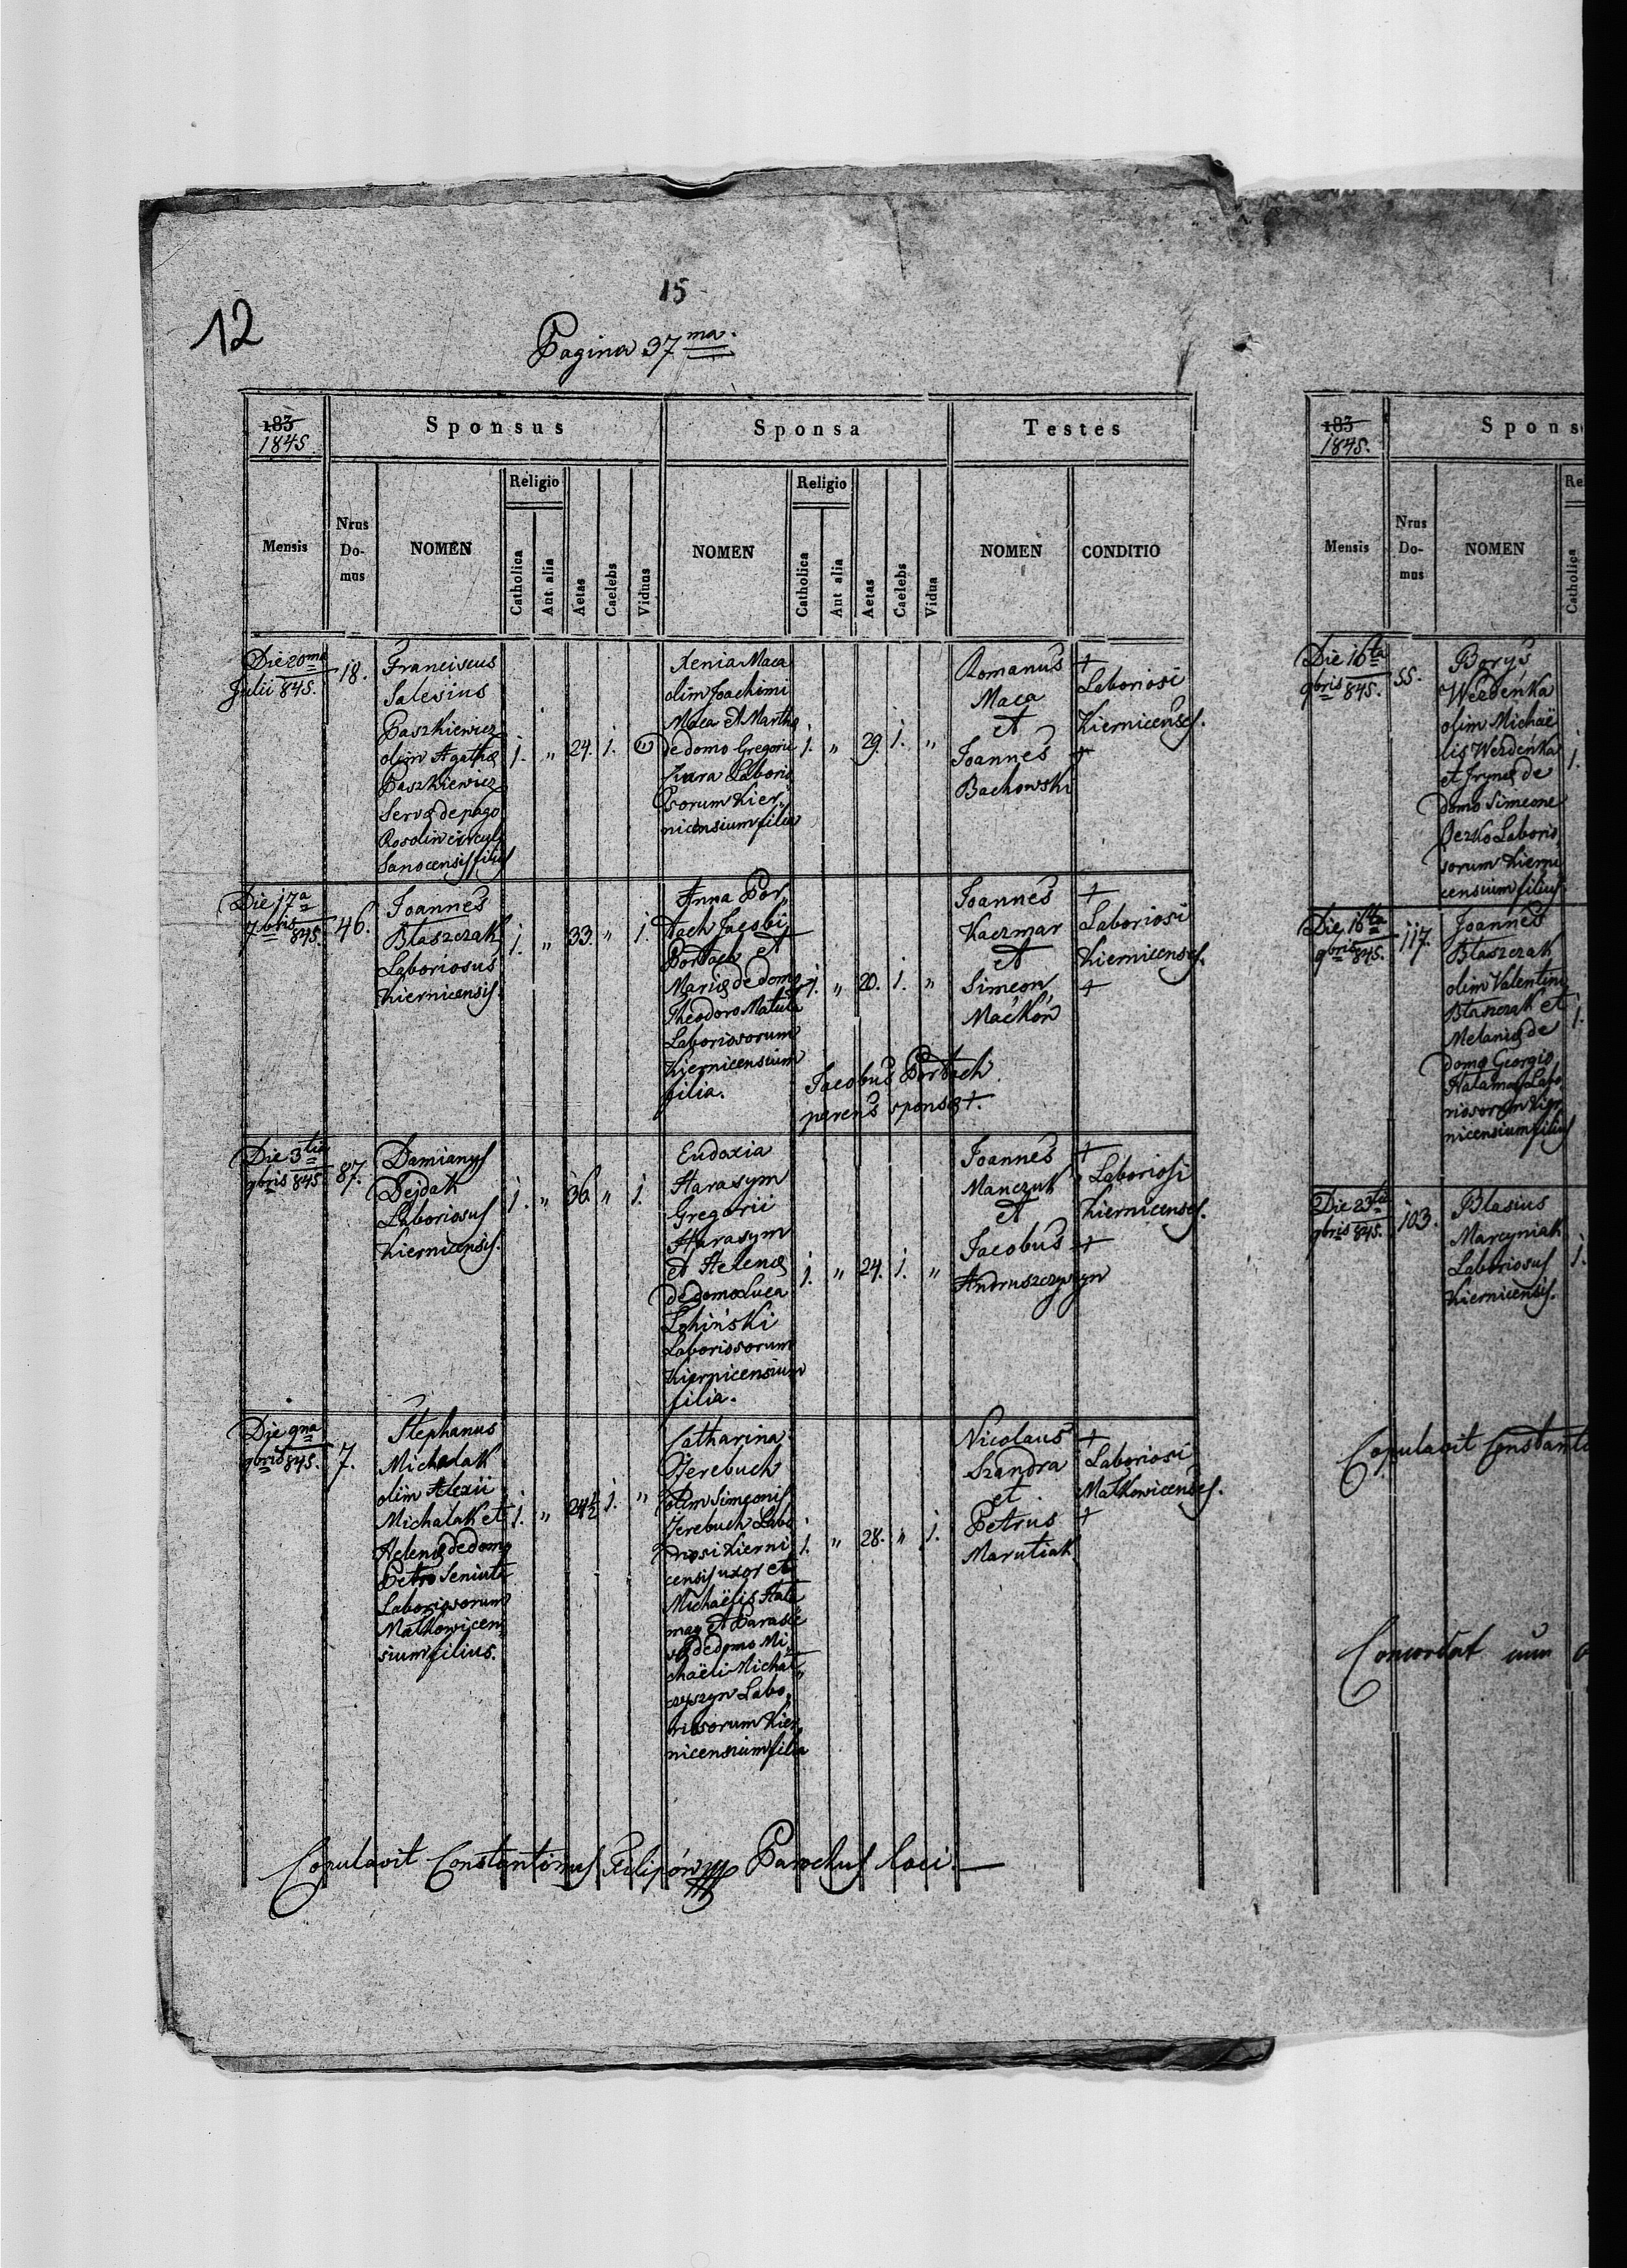 15
12
Pagina 37ma.
183
1845.
Sponsus
Sponsa
Testes
Mensis
Nrus
Do-
mus
NOMEN
Religio
Catholica
Aut. alia
Aetas
Caelebs
Viduus
NOMEN
Religio
Catholica
Aut alia
Aetas
Caelebs
Vidua
NOMEN
CONDITIO
Die 20ma
Julii 845.
18.
Franciscus
Salesius
Paszkiewicz
olim Agathæ
Paszkiewicz
Servæ de pago
Rosolin circuli
Sanocensis filius
1.
"
24.
1.
Xenia Maca
olim Joachimi
Maca et Marthæ
de domo Gregorii
Laborio
sorum Kier
nicensium filia
1.
"
29.
1.
"
Romanus
Maca
et
Joannes
Bachowski
+
Laboriosi
Kiernicenses.
+
Die 17a
7bris 845.
46.
Joannes
Błaszczak
Laboriosus
Kiernicensis.
1.
"
33.
"
1.
Anna Por
tach Jacobi
Portach et
Mariæ de domo
Theodoro Matula
Laboriosorum
Kiernicensium
filia.
1.
"
20.
1.
"
Jacobus Portach
parens sponsæ +.
Joannes
Kaczmar
et
Simeon
Maćkow
+
Laboriosi
Kiernicenses.
+
Die 3tia
9bris 845.
87.
Damianus
Dejdak
Laboriosus
Kiernicensis.
1.
"
36.
"
1.
Eudoxia
Harasym
Gregorii
Harasym
et Helenæ
de domo Luca
Łohiński
Laboriosorum
Kiernicensium
filia.
1.
"
24.
1.
"
Joannes
Manczuk
et
Jacobus
Andruszczyszyn
+
Laboriosi
Kiernicenses.
+
Die 9na
9bris 845.
7.
Stephanus
Michalak
olim Alexii
Michalak et
Helenæ de domo
Petro Seniuta
Laboriosorum
Małkowicen
sium filius.
1.
"
24½
1.
"
Catharina
Jerebuch
olim Simeonis
Jerebuch Labo
riosi Kierni
censis uxor et
Michaëlis Hała
may et Parasce
væ de domo Mi
chaëli Michał
czyszyn Labo
riosorum Kier
nicensium filia
1.
"
28.
"
1.
Nicolaus
Szandra
et
Petrus
Marutiak
+
Laboriosi
Małkowicenses.
+
Copulavit Constantinus Filipów Parochus loci.
183
1845.
Spons
Mensis
Nrus
Do-
mus
NOMEN
Re
Catholica
Die 16ta
9bris 845.
55.
Borys
Werdeńka
olim Michaë
lis Werdeńka
et Irynæ de
domo Simeone
Laborio
sorum Kierni
censium filius
1.
Die 16ta
9bris 845.
117.
Joannes
Błaszczak
olim Valentini
Błaszczak et
Melaniæ de
domo Georgio
Hałamay Labo
riosorum Kier
nicensium filius
1.
Die 23tia
9bris 845.
103.
Blasius
Marcyniak
Laboriosus
Kiernicensis.
1.
Copulavit Constanti
Concordat cum